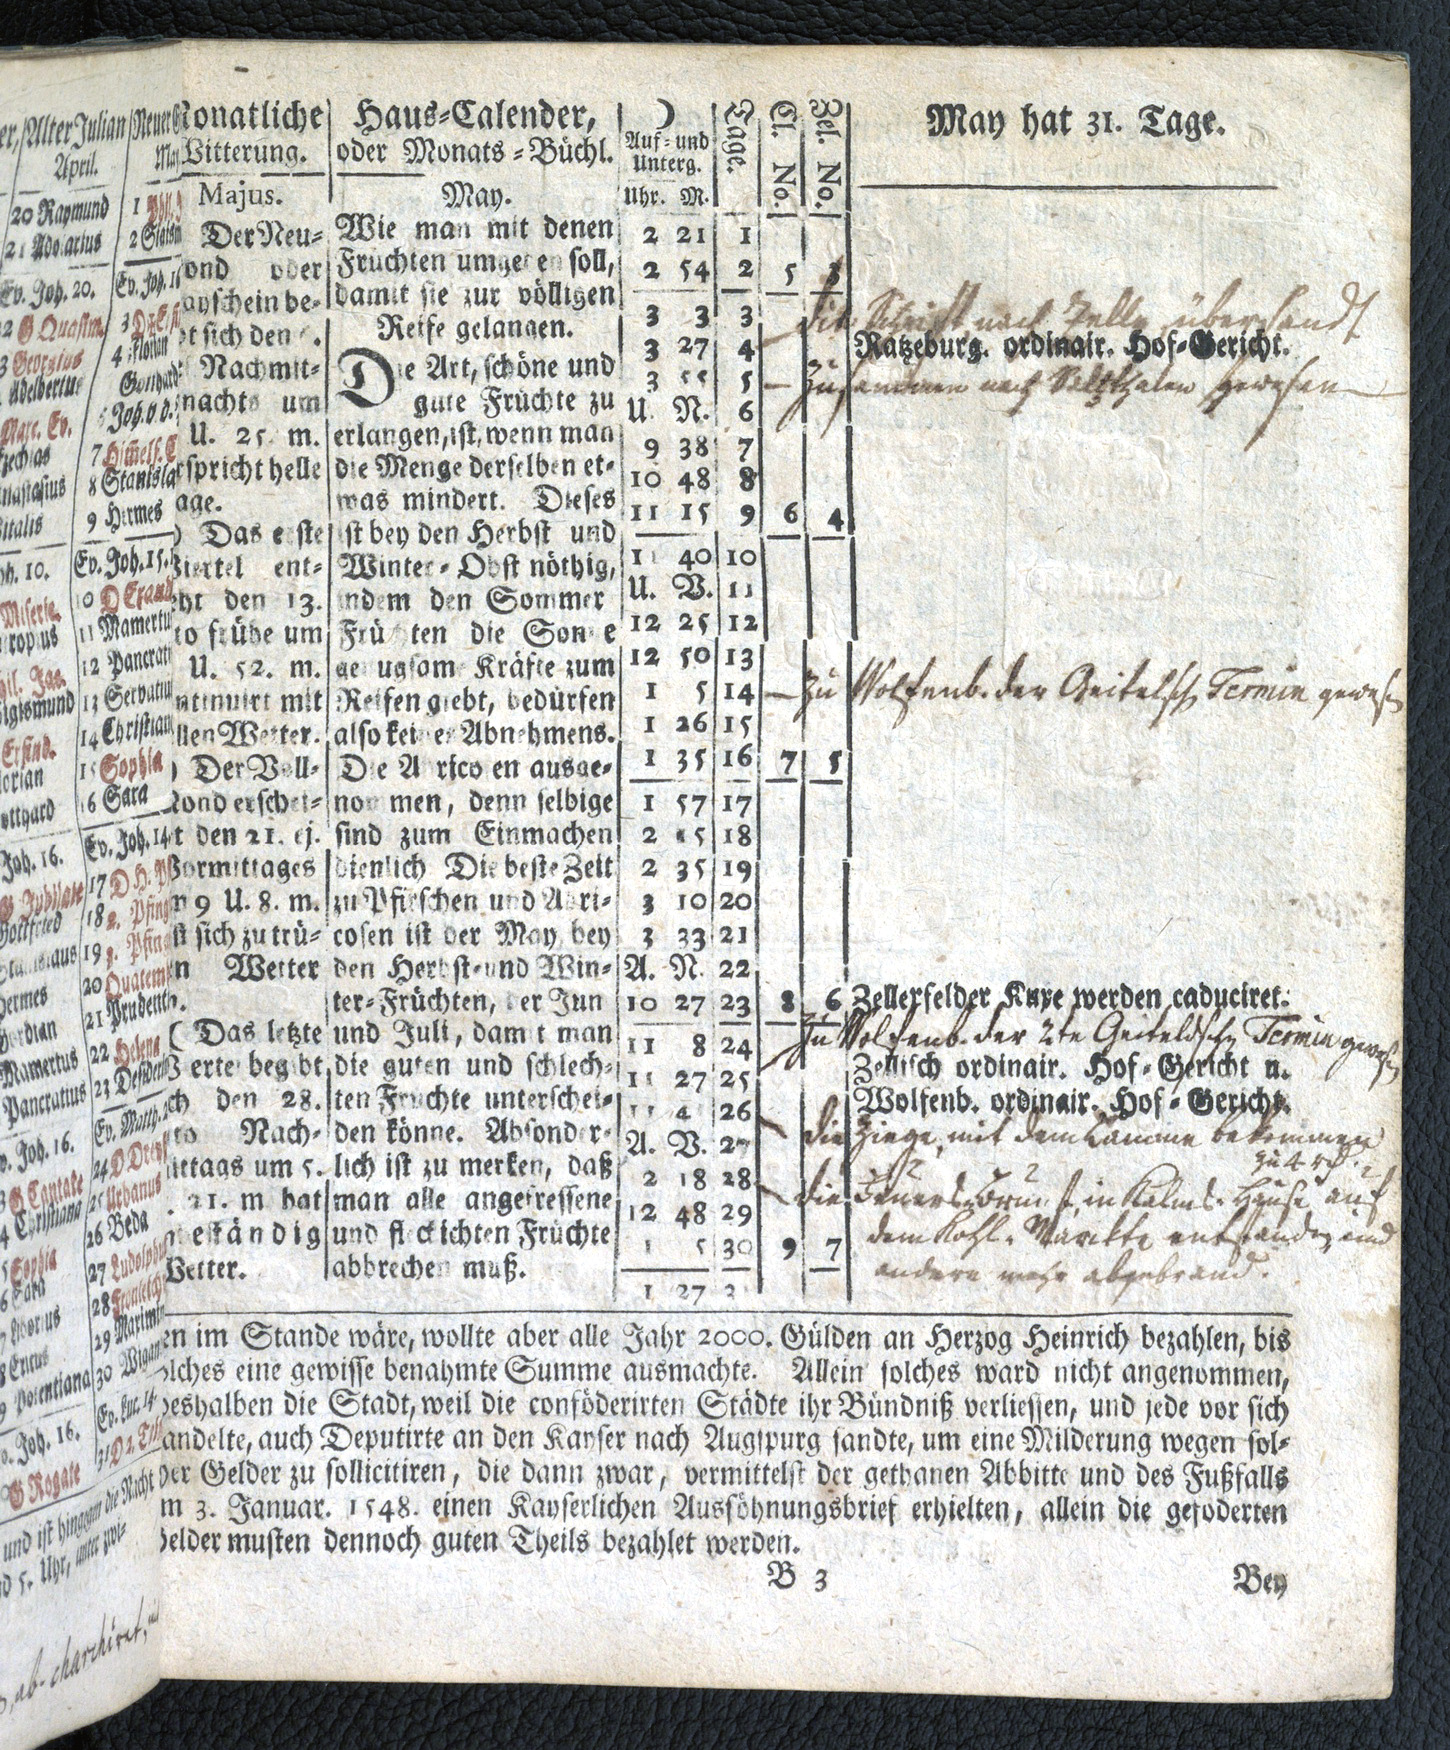 er, Alter Julian Neuer
April. May
20 Raymund
21 Adolarius
Ev. Joh. 20.
G Quasim.
Georgius
Adelbertus
Marc. Ev.
Ezechias
Anastasius
Vitalis
Miseric.
Eutropius
Sigismund
Florian
Gotthard
Joh. 16.
G Jubilate
Gottfried
Stanislaus
Hermes
Gordian
Mamertus
Pancratius
Joh. 16.
G Cantate
4 Christiana
Sophia
Sara
Potentiana
Joh. 16.
G Rogate
2 Sigism
Ev. Joh. 16
4 Florian
Gotthard
Joh. v. d.
7 Himelf. C
8 Stanisla
9 Hermes
Ev. Joh. 15.
10 D Exaud
11 Mamertu
12 Pancrati
13 Servatiu
14 Christian
15 Sophia
16 Sara
Ev. Joh. 14
17 D H. Pf
18 2. Pfing
19 3. Pfing
20 Quatem
21 Prudenth.
22 Helena
23 Desideri
Ev. Matth.
24 D Drey
25 Urbanus
26 Beda
27 Ludolphus
28
29 Maximin
30 Wigan
Ev. Luc. 14
und ist hingegen die Nacht
und 5. Uhr, unter
Monatliche
Witterung.
Majus.
Der Neu-
ond oder
ayschein be-
t sich den .
Nachmit-
nachts um
U. 25. m.
rspricht helle
age.
) Das erste
Viertel ent-
eht den 13.
to frühe um
U. 52. m.
ntinuirt mit
llen Wetter.
) Der Voll-
Mond erschei-
t den 21. ej.
Vormittages
n 9 U. 8. m.
ßt sich zu trü-
n Wetter
( Das letzte
Vertel begibt
ch den 28.
to Nach-
ittags um 5.
. 21. m hat
nbeständig
Wetter.
Haus-Calender,
oder Monats-Büchl.
May.
Wie man mit denen
Früchten umgehen soll,
damit sie zur völligen
Reife gelangen.
Die Art, schöne und
gute Früchte zu
erlangen, ist, wenn man
die Menge derselben et-
was mindert. Dieses
ist bey den Herbst und
Winter-Obst nöthig,
indem den Sommer
Früchten die Sonne
genugsame Kräfte zum
Reifen giebt, bedürfen
also keines Abnehmens.
Die Apricosen ausge-
nommen, denn selbige
sind zum Einmachen
dienlich Die beste Zeit
zu Pfirschen und Abri-
cosen ist der May, bey
den Herbst-und Win-
ter-Früchten, der Jun
und Juli, damit man
die guten und schlech-
ten Fruchte unterschei-
den könne. Absonder-
lich ist zu merken, daß
man alle angefressene
und fleckichten Früchte
abbrechen muß.
☽ Tage. El. No. Zel. No.
Auf- und
Unterg.
Uhr. M.
2 21 1
2 54 2 5 3
3 3 3
3 27 4
3 55 5
U. N. 6
9 38 7
10 48 8
11 15 9 6 4
11 40 10
U. V. 11
12 25 12
12 50 13
1 5 14
1 26 15
1 35 16 7 5
1 57 17
2 15 18
2 35 19
3 10 20
3 33 21
A. N. 22
10 27 23 8 6
11 8 24
11 27 25
11 4 26
A. V. 27
2 18 28
12 48 29
1 5 30 9 7
1 27 3
May hat 31. Tage.
die Schrift nach Zelle übersandt
Ratzeburg. ordinair. Hof-Gericht.
zusammen nach Saltzthalen gewesen
zu Wolfenb. der Geitelsch Termin gewesen
Zellerfelder Kuxe werden caduciret.
zu Wolfenb. der 2te Geiteldsch Termin gewesen
Zellisch ordinair. Hof-Gericht n.
Wolfenb. ordinair. Hof-Gericht.
die Ziege mit dem Lamme bekommen
zu 4 rth.
die Feuers Brunst in Kalms. Hause auf
dem Kohl-Marckte entstanden und
andere mehr abgebrand.
en im Stande wäre, wollte aber alle Jahr 2000. Gülden an Herzog Heinrich bezahlen, bis
olches eine gewisse benahmte Summe ausmachte. Allein solches ward nicht angenommen,
deshalben die Stadt, weil die conföderirten Städte ihr Bündniß verliessen, und jede vor sich
andelte, auch Deputirte an den Kayser nach Augspurg sandte, um eine Milderung wegen sol-
cher Gelder zu sollicitiren, die dann zwar, vermittelst der gethanen Abbitte und des Fußfalls
m 3. Januar. 1548. einen Kayserlichen Aussöhnungsbrief erhielten, allein die gefoderten
Gelder musten dennoch guten Theils bezahlet werden.
B 3 Bey